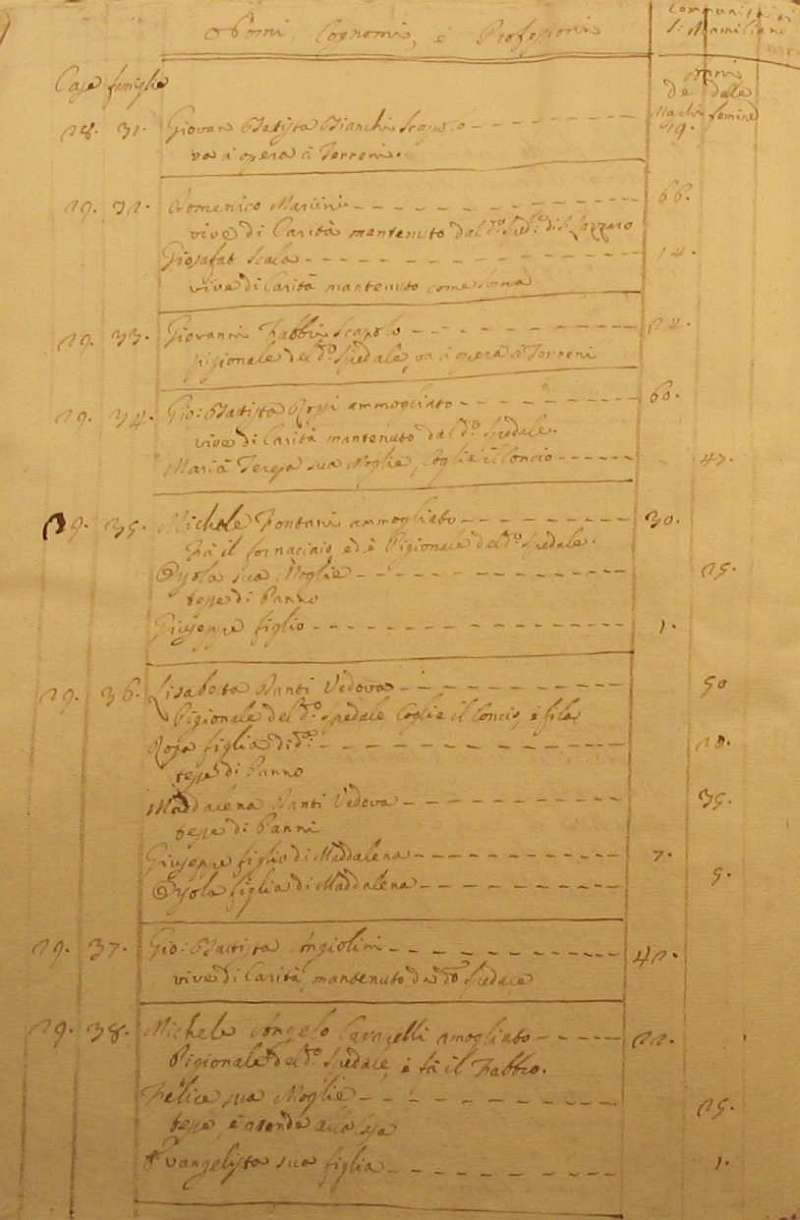 Nomi, Cognomi, e Professioni
Comunità di
S. Mamiliano
Case famiglie
Anni
de dalle
Maschi femine
18. 31. Giovan Batista Bianchi Scapolo 19.
va a opera a Terreni.
19. 32. Domenico Marini 66.
vive di Carità mantenuto dal d.º Sped.e di S. Lazzero
Giosafat Scala
vive di Carità mantenuto come sopra
19. 33. Giovanni Fabbri Scapolo
pigionale del d.º Spedale, va a opera a Terreni
19. 34. Gio: Batista Rossi ammogliato 60.
vive di Carità mantenuto dal d.º Spedale.
Maria Teresa sua Moglie, Coglie il Concio 47.
19. 35. Michele Fontani ammogliato 30.
Fà il fornaciaio, ed è Pigionale del d.º Spedale.
Orsola sua Moglie 25.
tesse di Panno
Giuseppe figlio 1.
19. 36. Lisabetta Santi Vedova 50
Pigionale del d.º Spedale Coglie il Concio, e fila
Rosa figlia di d.ª 18.
tesse di Panno
Maddalena Santi Vedova 35.
tesse di Panni
Giuseppe figlio di Maddalena 7.
Orsola figlia di Maddalena 5.
19. 37. Gio: Batista Angiolini 42.
vive di Carità, mantenuto da d.º Spedale
19. 38. Michele Angelo Caracelli amogliato 22.
Pigionale del d.º Spedale, e fà il Fabbro.
Felice sua Moglie 25.
tesse, e attende a casa
Evangelista sua figlia 1.